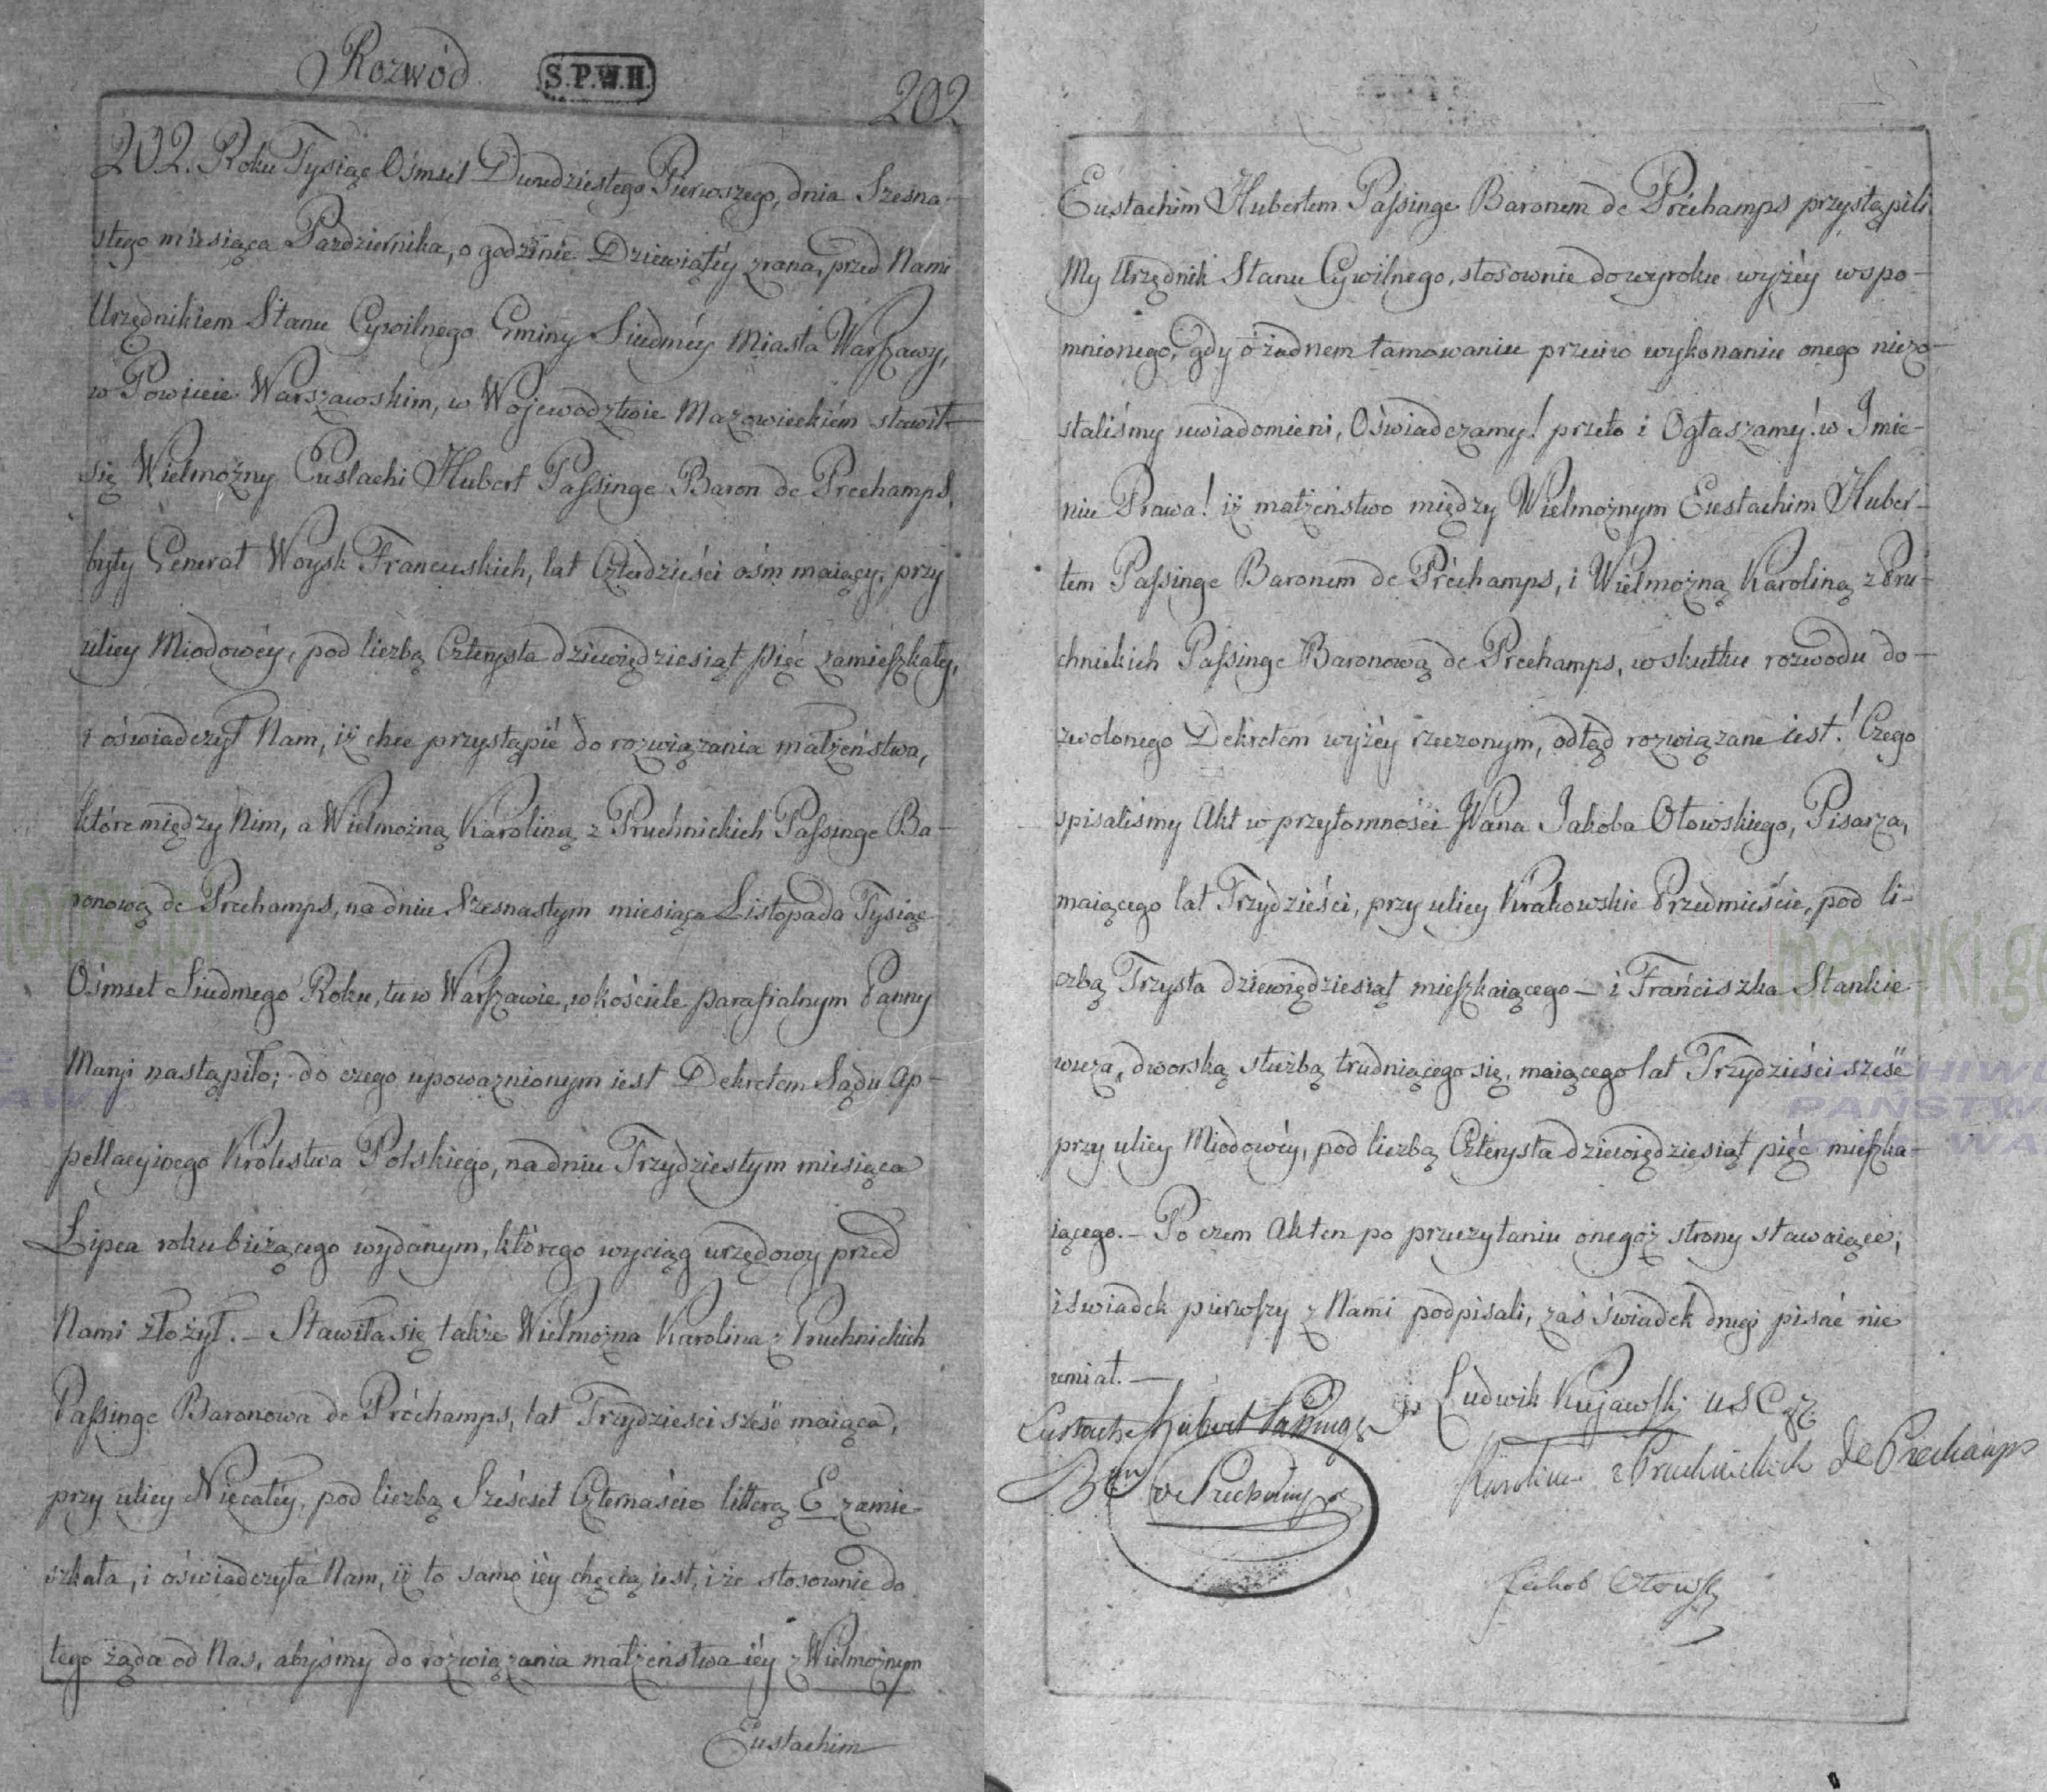 Rozwód
S.P.W.H.
202
202. Roku Tysiąc Ośmset Dwudziestego Pierwszego, dnia Szesna-
stego miesiąca Pazdziernika, o godzinie Dziewiątéy zrana, przed Nami
Urzędnikiem Stanu Cywilnego Gminy Siudméy Miasta Warszawy,
w Powiecie Warszawskim, w Wojewodztwie Mazowieckiém stawił
się Wielmożny Eustachi Hubert Passinge Baron de Préchamps,
były Generał Woysk Francuskich, lat Czterdzieści ośm maiący, przy
ulicy Miodowéy, pod liczbą Czterysta dziewięćdziesiąt pięć zamieszkały,
i oświadczył Nam, iż chce przystąpić do rozwiązania małżeństwa,
które między Nim, a Wielmożną Karoliną z Pruchnickich Passinge Ba-
ronową de Prechamps, na dniu Szesnastym miesiąca Listopada Tysiąc
Ośmset Siudmego Roku, tu w Warszawie, w kościele parafialnym Panny
Maryi nastąpiło; do czego upoważnionym iest Dekretem Sądu Ap-
pellacyinego Krolestwa Polskiego, na dniu Trzydziestym miesiąca
Lipca roku bieżącego wydanym, którego wyciąg urzędowy przed
Nami złożył. – Stawiła się także Wielmożna Karolina z Pruchnickich
Passinge Baronowa de Préchamps, lat Trzydzieści sześć maiąca,
przy ulicy Niecałéy, pod liczbą Sześćset Czternaście litterą E zamie-
szkała, i oświadczyła Nam, iż to samo iéy chęcią iest, i że stosownie do
tego żąda od Nas, abyśmy do rozwiązania małżeństwa iéy z Wielmożnym
Eustachim
Eustachim Hubertem Passinge Baronem de Préchamps przystąpili.
My Urzędnik Stanu Cywilnego, stosownie do wyroku wyżéy wspo-
mnionego, gdy o żadnem tamowaniu przeciw wykonaniu onego niezo-
staliśmy uwiadomieni, Oświadczamy! przeto i Ogłaszamy! w Imie-
niu Prawa! iż małżeństwo między Wielmożnym Eustachim Huber-
tem Passinge Baronem de Préchamps, i Wielmożną Karoliną z Pru-
chnickich Passinge Baronową de Prechamps, w skutku rozwodu do-
zwolonego Dekretem wyżéy rzeczonym, odtąd rozwiązane iest! Czego
spisaliśmy Akt w przytomności Wana Jakóba Otowskiego, Pisarza,
maiącego lat Trzydzieści, przy ulicy Krakowskie Przedmieście, pod li-
czbą Trzysta dziewięćdziesiąt mieszkaiącego – i Franciszka Stankie
wicza, dworską służbą trudniącego się, maiącego lat Trzydzieści sześć
przy ulicy Miodowéy, pod liczbą Czterysta dziewięćdziesiąt pięć mieszka-
iącego. – Po czem Akt ten po przeczytaniu onegoż strony stawaiące,
i swiadek pierwszy z Nami podpisali, zaś świadek drugi pisać nie
umiał. –
Eustache Hubert Passinge
Ludwik Kujawski USC
Bon de Prechamps
Karolina z Pruchnickich de Prechamps
Jakob Otowski